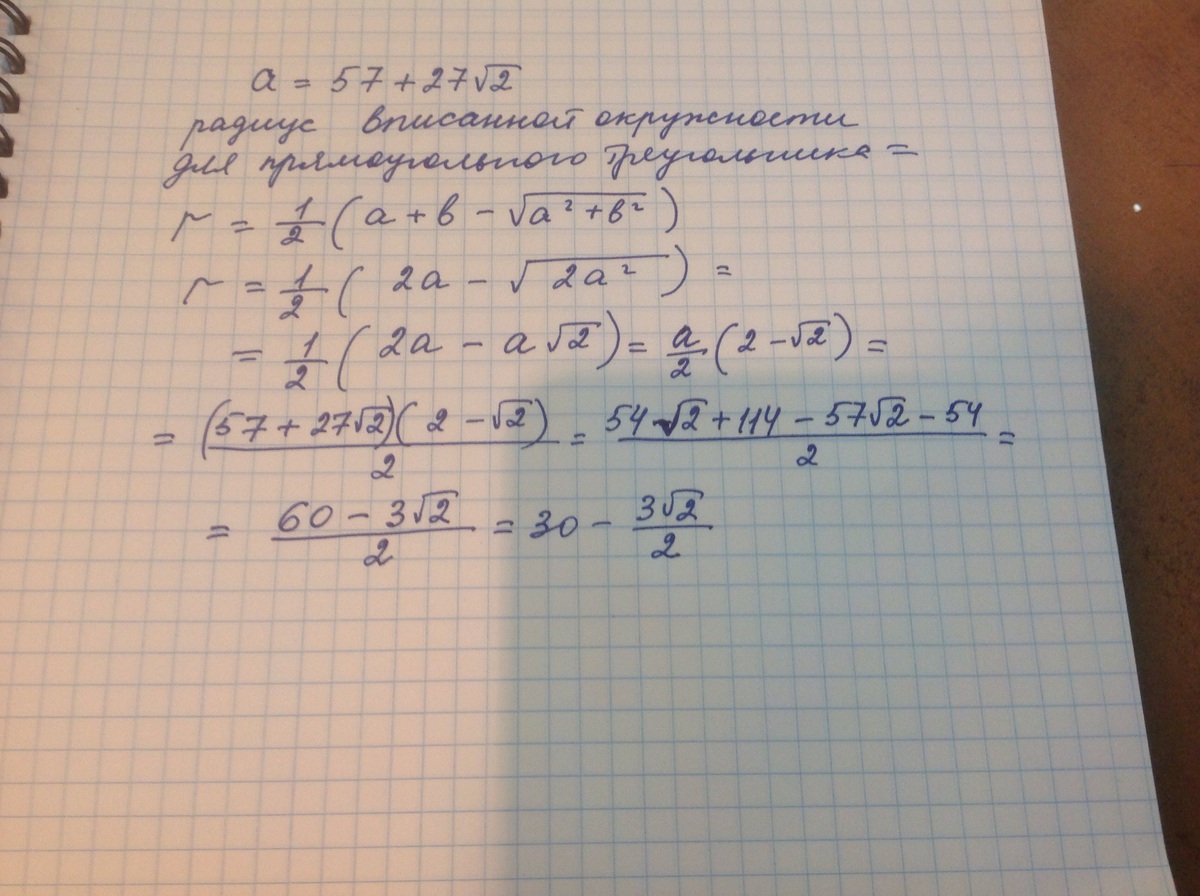 a = 57 + 27√2
радиус вписанной окружности
для прямоугольного треугольника =
r = 1/2 ( a + в - √(a² + в²) )
r = 1/2 ( 2a - √(2a²) ) =
= 1/2 ( 2a - a√2 ) = a/2 ( 2 - √2 ) =
= (57 + 27√2)( 2 - √2 )/2 = (54√2 + 114 - 57√2 - 54)/2 =
= (60 - 3√2)/2 = 30 - 3√2/2